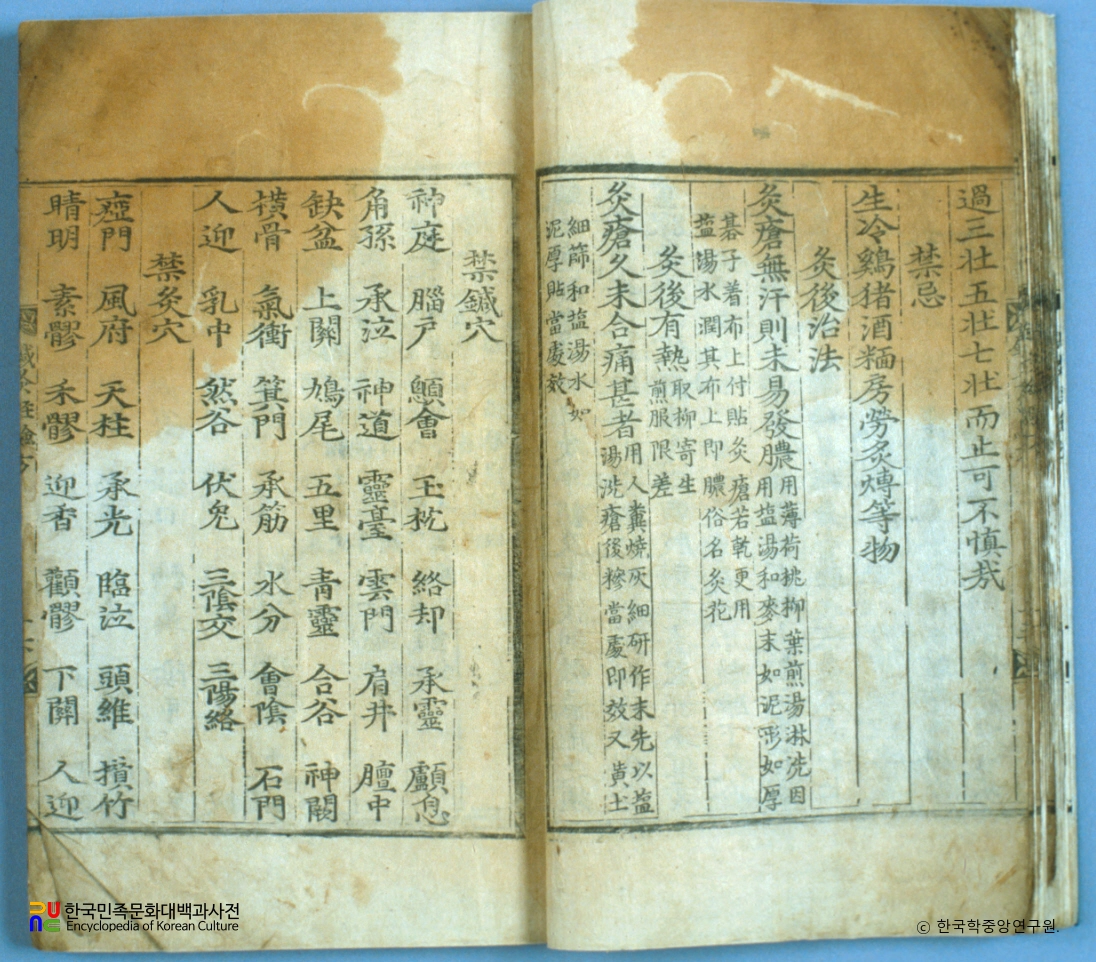 過三壯五壯七壯而止可不慎哉
禁忌
生冷鷄猪酒麵房勞炙煿等物
灸後治法
灸瘡無汗則未易發膿用薄荷桃柳葉煎湯淋洗因
用塩湯和麥末如泥形如厚
碁子着布上付貼灸瘡若乾更用
塩湯水潤其布上即膿俗名灸花
灸後有熱取柳寄生
煎服限差
灸瘡久未合痛甚者用人糞燒灰細研作末先以塩
湯洗瘡後糝當處即效又黃土
細篩和塩湯水如
泥厚貼當處效
禁鍼穴
神庭 腦戶 顖會 玉枕 絡却 承靈 顱息
角孫 承泣 神道 靈臺 雲門 肩井 膻中
缺盆 上關 鳩尾 五里 靑靈 合谷 神闕
橫骨 氣衝 箕門 承筋 水分 會陰 石門
人迎 乳中 然谷 伏兔 三陰交 三陽絡
禁灸穴
瘂門 風府 天柱 承光 臨泣 頭維 攅竹
睛明 素髎 禾髎 迎香 顴髎 下關 人迎
한국민족문화대백과사전
Encyclopedia of Korean Culture
© 한국학중앙연구원.